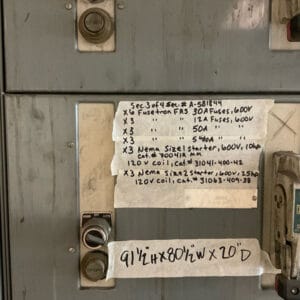 Sec 3 of 4 Ser. # A-581844
x6 Fusetron FRS 30A Fuses, 600V
x3 " " 12A Fuses, 600V
x3 " " 50A " "
x3 " " 540A " "
x3 Nema Size 1 starter, 600V, 10hp
120V coil, cat.# 31041-400-42
x3 Nema Size 2 starter, 600V, 25hp
120V coil, cat.# 31063-409-38
91 1/2" H x 80 1/2" W x 20" D